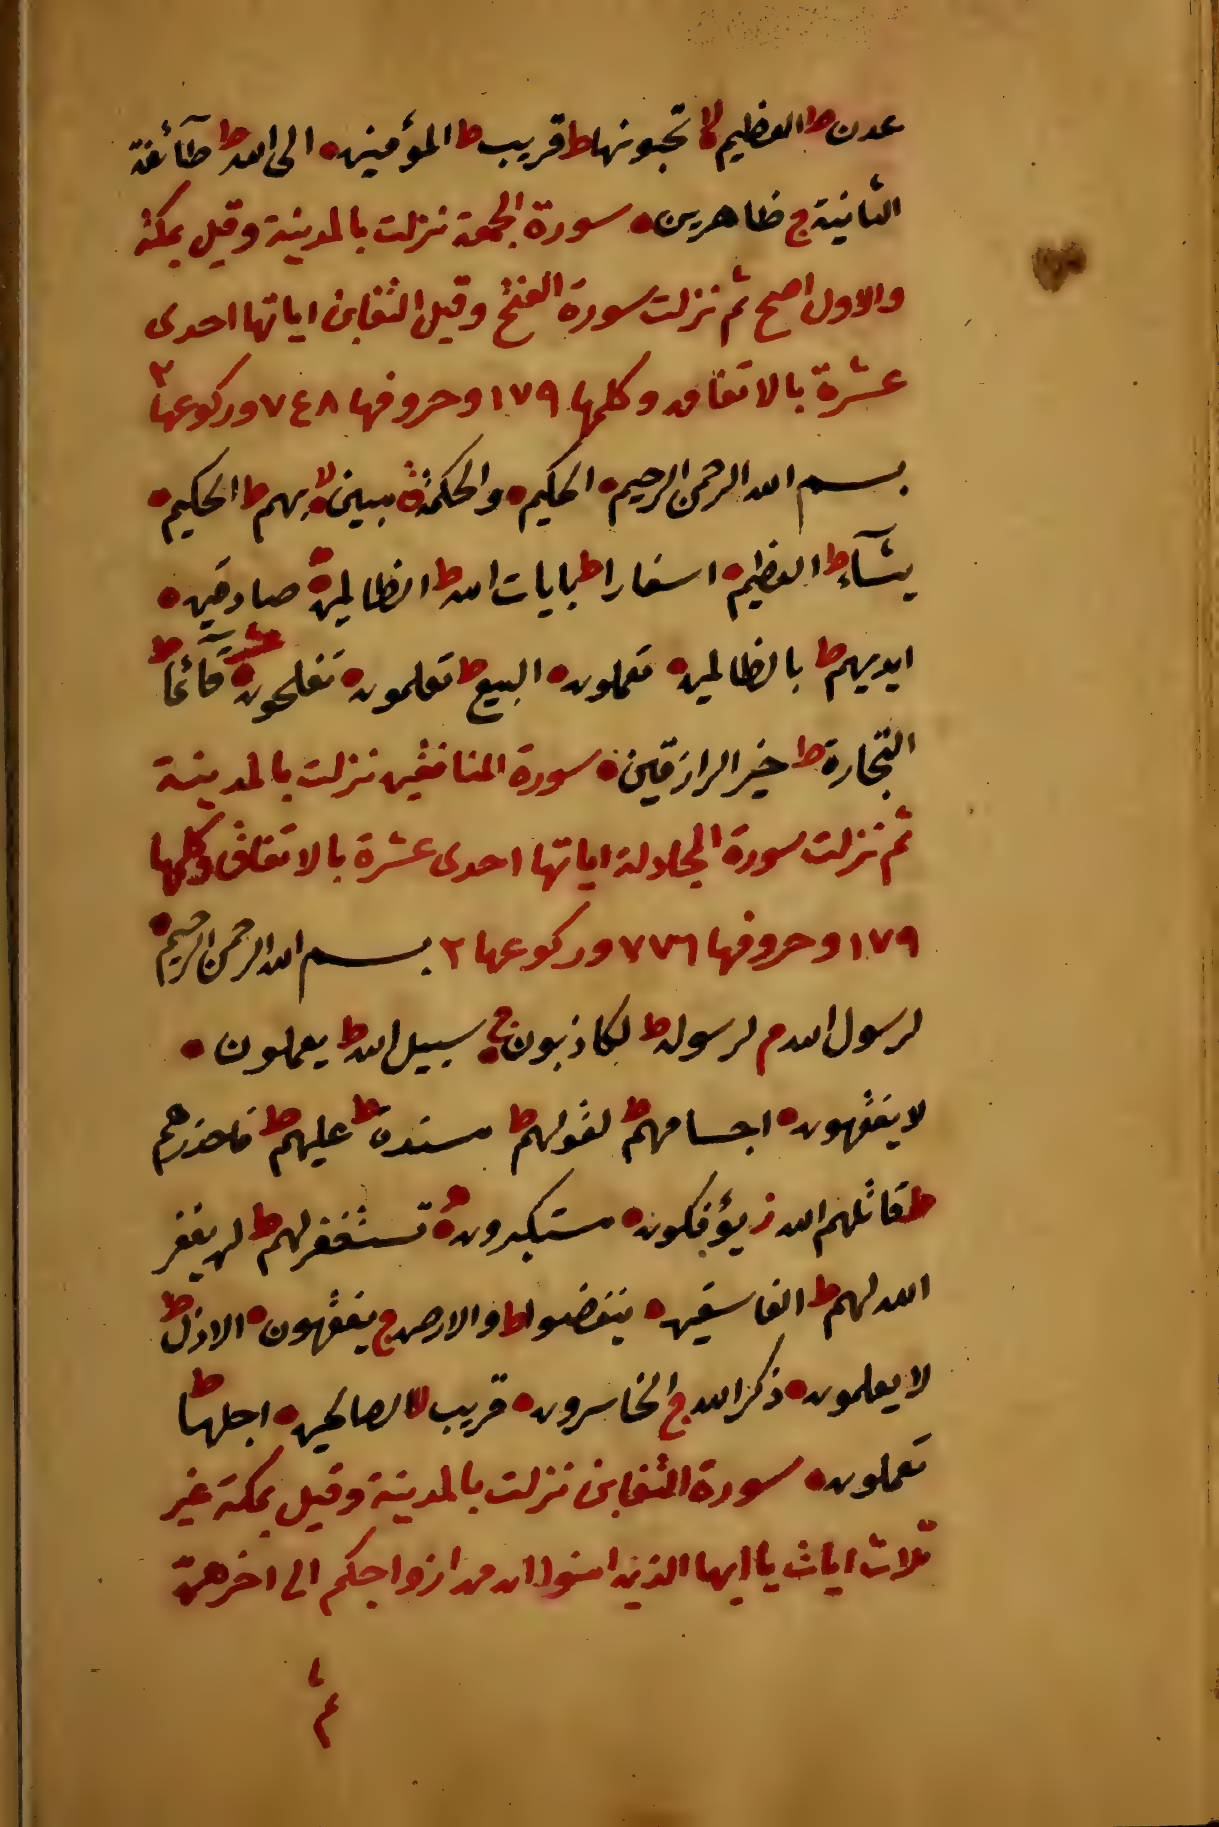 عدن ط العظيم لا تحبونها ط قريب ط المؤمنين ه الى الله ط طآئفة
الثانية ج ظاهرين ه سورة الجمعة نزلت بالمدينة وقيل بمكة
والاول اصح ثم نزلت سورة الفتح وقيل التغابن اياتها احدى
عشرة بالاتفاق وكلمها ١٧٩ وحروفها ٧٤٨ وركوعها ٢
بسم الله الرحمن الرحيم ه الحكيم ه والحكمة ق مبين لا بهم ط الحكيم ه
يشآء ط العظيم ه اسفارا ط بايات الله ط الظالمين ه صادقين ه
ايديهم ط بالظالمين ه تعملون ه البيع ط تعلمون ه تفلحون ه قآئما ط
التجارة ط خير الرازقين ه سورة المنافقين نزلت بالمدينة
ثم نزلت سورة المجادلة اياتها احدى عشرة بالاتفاق وكلمها
١٧٩ وحروفها ٧٧٦ وركوعها ٢ بسم الله الرحمن الرحيم ه
لرسول الله م لرسوله ط لكاذبون ج سبيل الله ط يعملون ه
لا يفقهون ه اجسامهم ط لقولهم ط مسندة ط عليهم ط فاحذرهم
ط قاتلهم الله ز يؤفكون ه مستكبرون ه تستغفر لهم ط لن يغفر
الله لهم ط الفاسقين ه ينفضوا ط والارض ج يفقهون ه الاذل ط
لا يعلمون ه ذكر الله ج الخاسرون ه قريب لا الصالحين ه اجلها ط
تعملون ه سورة التغابن نزلت بالمدينة وقيل بمكة غير
ثلاث ايات يا ايها الذين امنوا ان من ازواجكم الى اخرهن